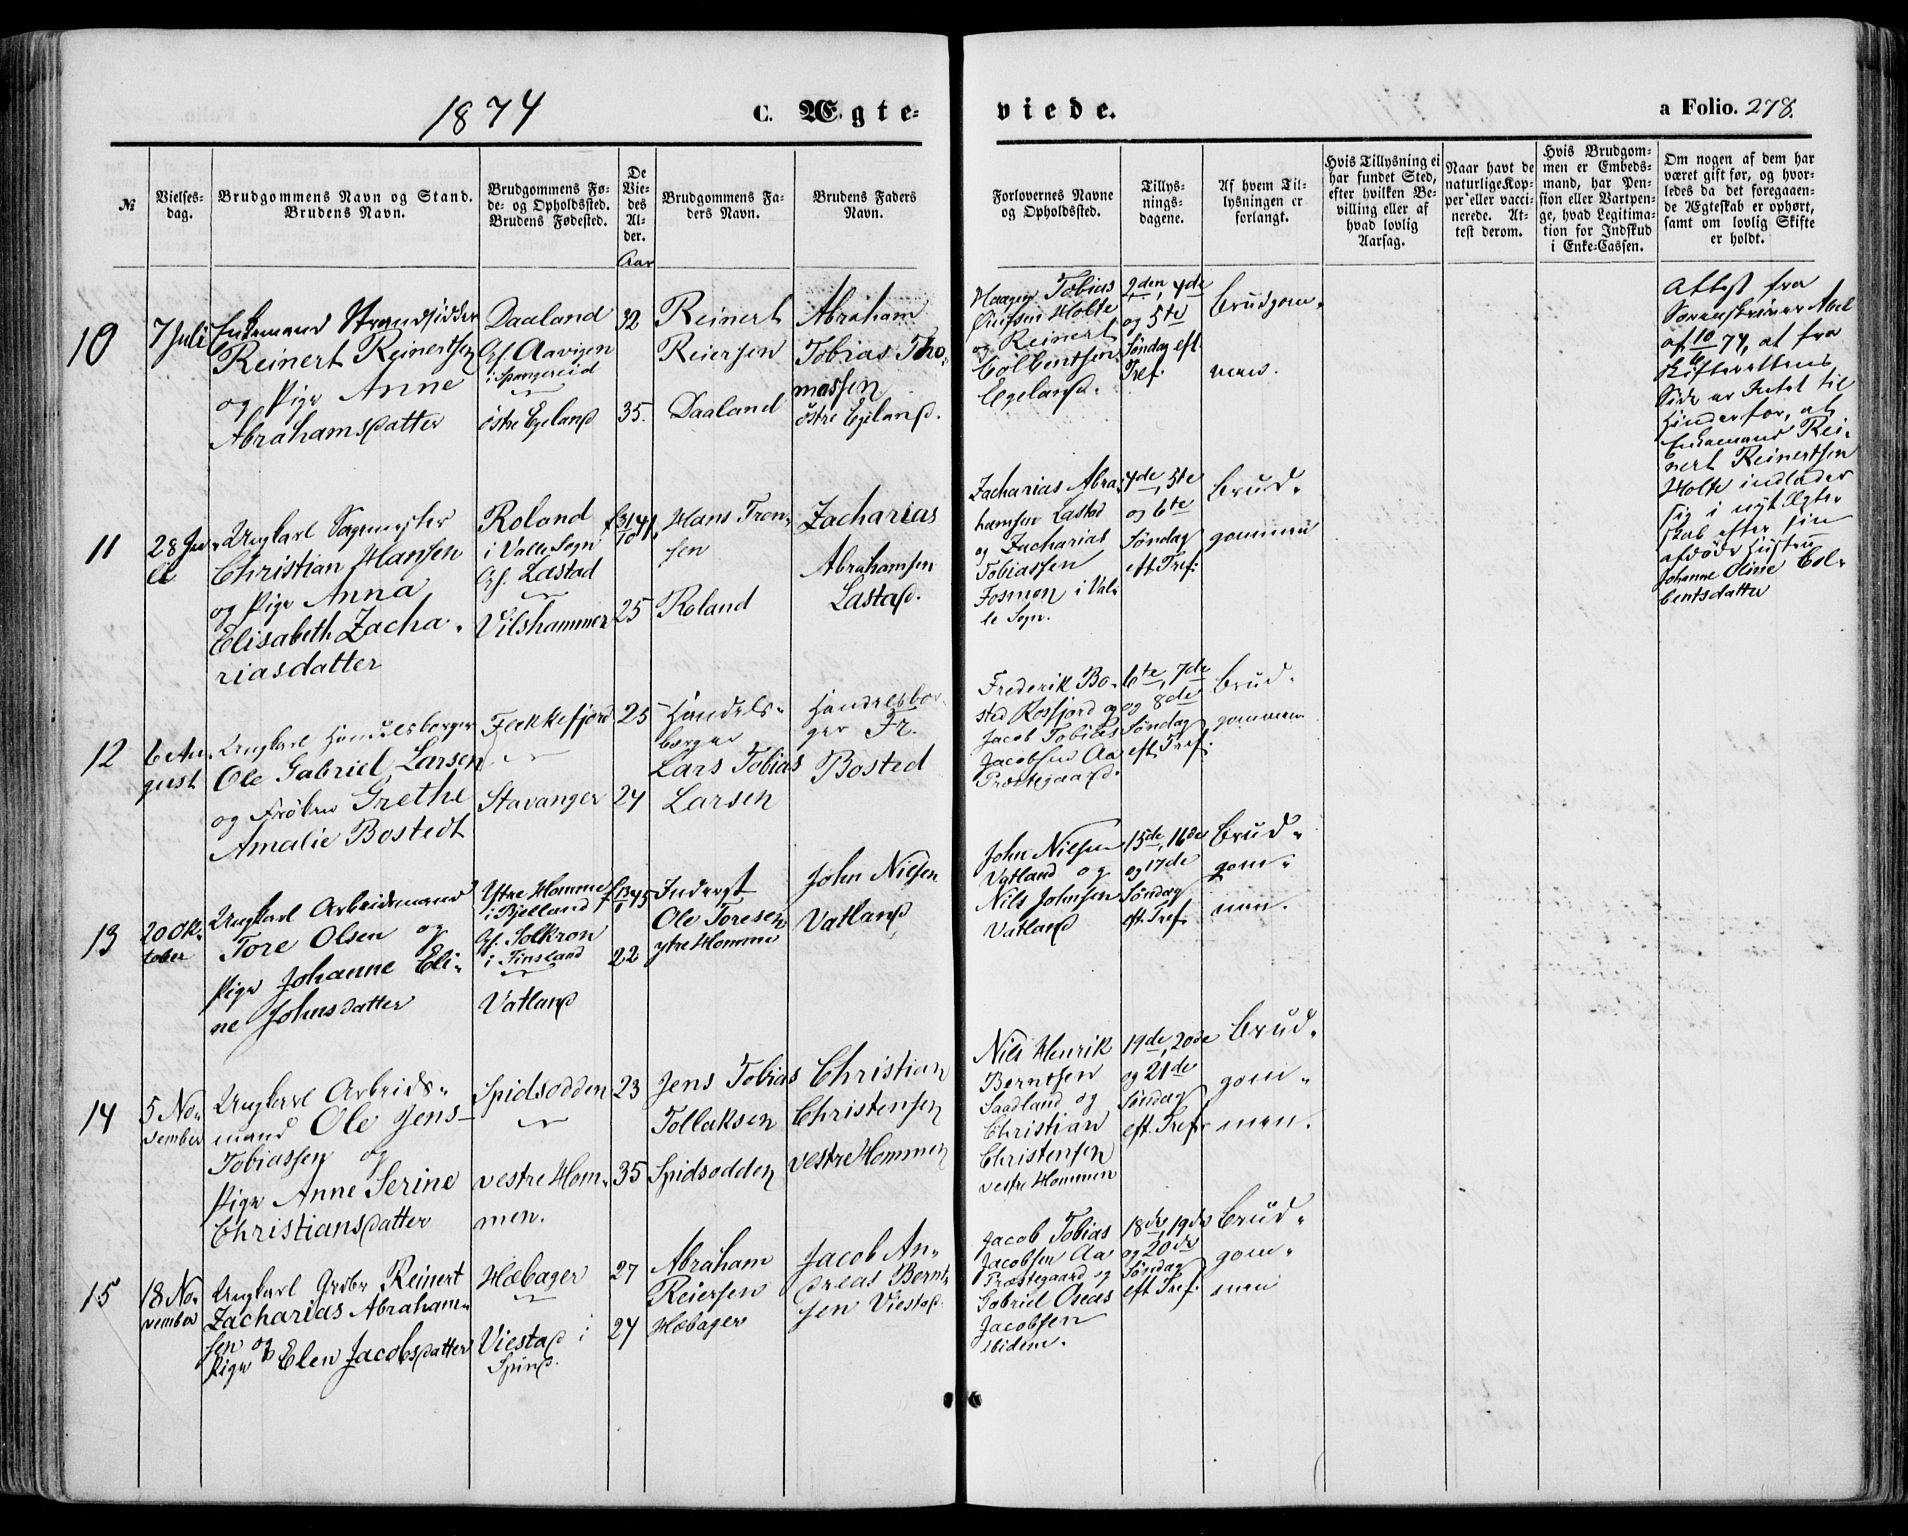 1874
C. Ægteviede.
a Folio. 278.
№
Vielsesdag.
Brudgommens Navn og Stand.
Brudens Navn.
Brudgommens Føde- og Opholdssted.
Brudens Fødested.
De Viedes Alder.
Aar
Brudgommens Faders Navn.
Brudens Faders Navn.
Forlovernes Navne og Opholdssted.
Tillysningsdagene.
Af hvem Tillysningen er forlangt.
Hvis Tillysning ei har fundet Sted, efter hvilken Bevilling eller af hvad lovlig Aarsag.
Naar havt de naturlige Kopper eller vaccinerede. Attest derom.
Hvis Brudgommen er Embedsmand, har Pension eller Vartpenge, hvad Legitimation for Indskud i Enke-Cassen.
Om nogen af dem har været gift før, og hvorledes da det foregaaende Ægteskab er ophørt, samt om lovlig Skifte er holdt.
10
7 Juli
Enkemand Strandsidder
Reinert Reinertsen
og Pige Anne
Abrahamsdatter
Daaland
Of. Aavigen
i Spangereid
østre Egeland
32
35.
Reinert
Reiersen
Daaland
Abraham
Tobias Tho-
massen
østre Egeland.
Haagen Tobias
Holte
og Reinert
Colbentsen
Egeland.
2den, 4de
og 5te
Søndag eft
Tref.
Brudgom-
men.
Attest fra
Sorenskriver Abel
af 10/6 74, at fra
Skifterettens
Side er Intet til
Hinder for, at
Enkemand Rei-
nert Reinertsen
Holte indlader
sig i nyt Ægte-
skab efter sin
afdøde Hustru
Johanne Oline Col-
bentsdatter
11
28 Ju-
li
Ungkarl Sagmester
Christian Hansen
og Pige Anna
Elisabeth Zacha-
riasdatter
Roland
i Valle Sogn
Of. Lastad
Vilshammer
f. 31/10 41
25
Hans Tron-
sen
Roland
Zacharias
Abrahamsen
Lastad.
Zacharias Abra-
hamsen Lastad
og Zacharias
Tobiassen
Fosmon i Val-
le Sogn.
4de, 5te
og 6te
Søndag
eft. Tref.
Brud-
gommen
12
6 Au-
gust
Ungkarl Handelsborger
Ole Gabriel Larsen
og Frøken Grethe
Amalie Bostedt
Flekkefjord
Stavanger
25
24
Handels-
borger
Lars Tobias
Larsen
Handelsbor-
ger Fr.
Bosted
Frederik Bo-
sted Rosfjord og
Jacob Tobias
Jacobsen Aa
Præstegaard.
6te, 7de
og 8de
Søndag
eft. Tref.
Brud-
gommen
13
20 Ok-
tober
Ungkarl Arbeidsmand
Tore Olsen og
Pige Johanne Eli-
ne Johnsdatter
Ytre Homme
i Bjelland
Of. Solkron
i Finsland
Vatland
f. 13/1 45
22
Inderst
Ole Toresen
ytre Homme
John Nielsen
Vatland
John Nielsen
Vatland og
Nils Johnsen
Vatland
15de, 16de
og 17de
Søndag
eft. Tref.
Brud-
gom-
men.
14
5 No-
vember
Ungkarl Arbeids-
mand Ole Jens
Tobiassen og
Pige Anne Serine
Christiansdatter
Spidsodden
vestre Hom-
men.
23
35
Jens Tobias
Tollaksen
Spidsodden
Christian
Christensen
vestre Hommen
Nils Henrik
Berntsen
Saadland og
Christian
Christensen
vestre Hommen
19de, 20de
og 21de
Søndag
eft. Tref.
Brud-
gom-
men.
15
18 No-
vember
Ungkarl Grdbr Reinert
Zacharias Abraham-
sen og
Pige Elen Jacobsdatter
Hæbager
Viestad i
Spind.
27
24
Abraham
Reiersen
Hæbager
Jacob An-
dreas Bernt-
sen Viestad.
Jacob Tobias
Jacobsen Aa
Præstegaard og
Gabriel Oseas
Jacobsen
ibidem.
18de, 19de
og 20de
Søndag
eft Tref.
Brud-
gom-
men